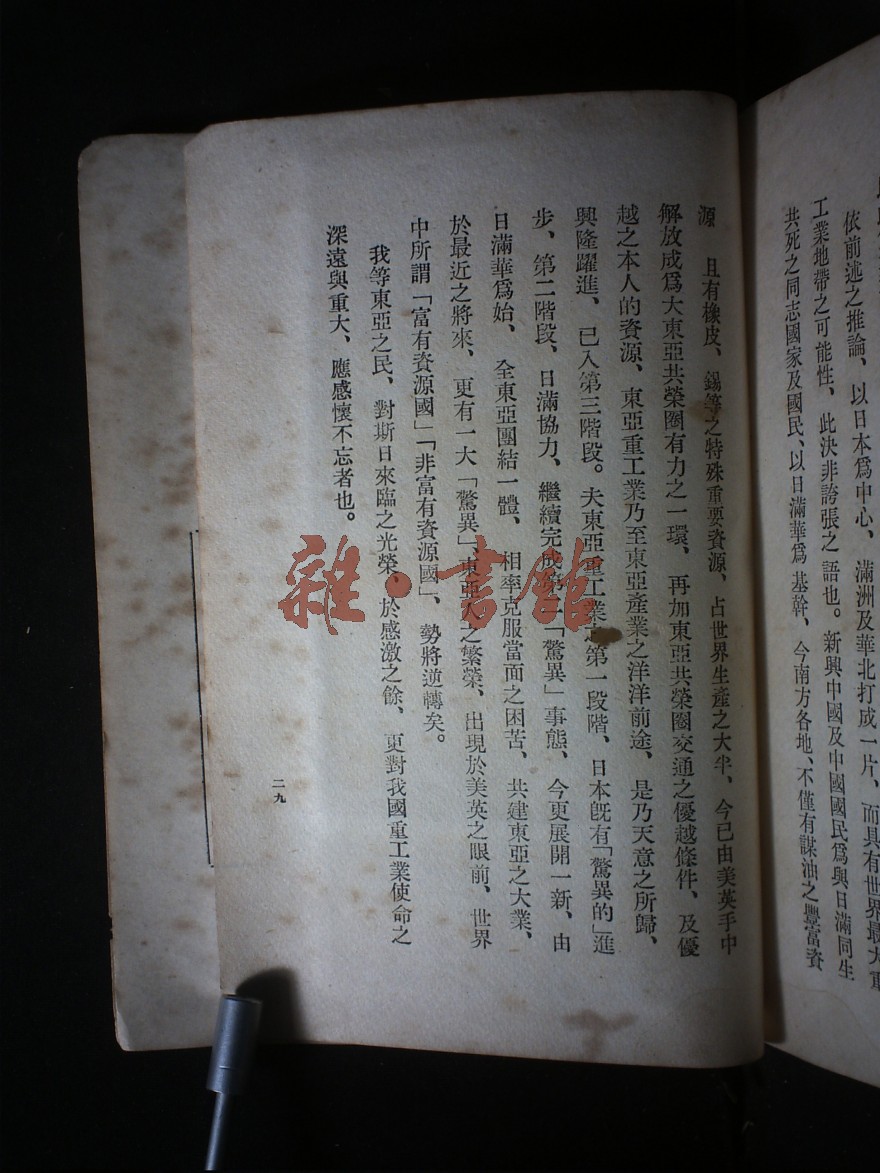 依前述之推論、以日本爲中心、滿洲及華北打成一片、而具有世界最大重
工業地帶之可能性、此決非誇張之語也。新興中國及中國國民爲與日滿同生
共死之同志國家及國民、以日滿華爲基幹、今南方各地、不僅有謀油之豐富資
源 且有橡皮、錫等之特殊重要資源、占世界生產之大半、今已由美英手中
解放成爲大東亞共榮圈有力之一環、再加東亞共榮圈交通之優越條件、及優
越之本人的資源、東亞重工業乃至東亞產業之洋洋前途、是乃天意之所歸、
興隆躍進、已入第三階段。夫東亞重工業之第一段階、日本旣有「驚異的」進
步、第二階段、日滿協力、繼續完成第二「驚異」事態、今更展開一新、由
日滿華爲始、全東亞團結一體、相率克服當面之困苦、共建東亞之大業、
於最近之將來、更有一大「驚異」、東亞人之繁榮、出現於美英之眼前、世界
中所謂「富有資源國」「非富有資源國」、勢將逆轉矣。
我等東亞之民、對斯日來臨之光榮、於感激之餘、更對我國重工業使命之
深遠與重大、應感懷不忘者也。
二九
雜·書館